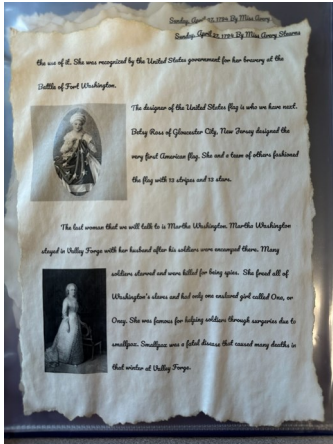 Sunday, April 25, 1784 By Miss Avery
Sunday, April 25, 1784 By Miss Avery Stearns
the use of it. She was recognized by the United States government for her bravery at the
Battle of Fort Washington.
The designer of the United States flag is who we have next.
Betsy Ross of Gloucester City, New Jersey designed the
very first American flag. She and a team of others fashioned
the flag with 13 stripes and 13 stars.
The last woman that we will talk to is Martha Washington. Martha Washington
stayed in Valley Forge with her husband after his soldiers were encamped there. Many
soldiers starved and were killed for being spies. She freed all of
Washington's slaves and had only one enslaved girl called Ona, or
Oney. She was famous for helping soldiers through surgeries due to
smallpox. Smallpox was a fatal disease that caused many deaths in
that winter at Valley Forge.